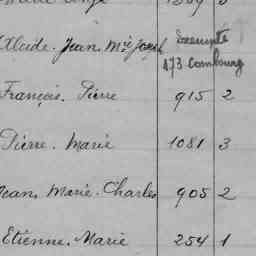 Alcide. Jean, Mie Joseph exempté
473 Combourg
François. Pierre 915 2
Pierre. Marie 1081 3
Jean, Marie. Charles 905 2
Etienne. Marie 254 1